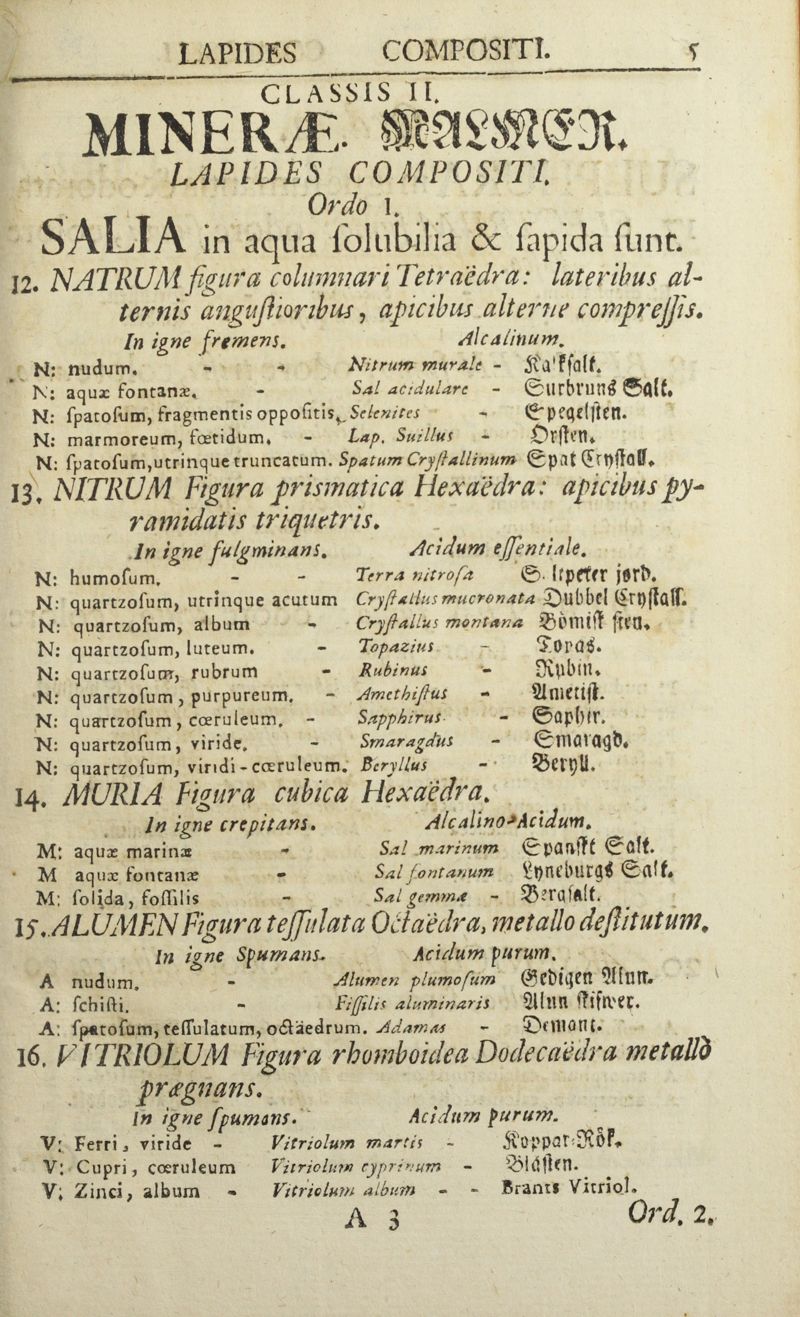 LAPIDES COMPOSITI. 5
CLASSIS II.
MINERÆ. MALMER.
LAPIDES COMPOSITI.
Ordo 1.
SALIA in aqua ſolubilia & ſapida ſunt.
12. NATRUM figura columnari Tetraëdra: lateribus al-
ternis anguſtioribus, apicibus alterne compreſſis.
In igne fremens. Alcalinum.
N: nudum. - - Nitrum murale - Ka'kſalt.
N: aquæ fontanæ. - Sal acidulare - Surbruns Salt.
N: ſpatoſum, fragmentis oppoſitis, Selenites - Spegelſten.
N: marmoreum, fœtidum. - Lap. Suillus - Orſten.
N: ſpatoſum, utrinque truncatum. Spatum Cryſtallinum Spat Cryſtall.
13. NITRUM Figura prismatica Hexaëdra: apicibus py-
ramidatis triquetris.
In igne fulgminans. Acidum eſſentiale.
N: humoſum. - - Terra nitroſa S. ltpetter jord.
N: quartzoſum, utrinque acutum Cryſtallus mucronata Dubbel Cryſtall.
N: quartzoſum, album - Cryſtallus montana Bömiſk ſten.
N: quartzoſum, luteum. - Topazius - Topas.
N: quartzoſum, rubrum - Rubinus - Rubin.
N: quartzoſum, purpureum. - Amethiſtus - Ametiſt.
N: quartzoſum, cœruleum. - Sapphirus - Saphir.
N: quartzoſum, viride. - Smaragdus - Smaragd.
N: quartzoſum, viridi-cœruleum. Beryllus - Beryll.
14. MURIA Figura cubica Hexaëdra.
In igne crepitans. Alcalino-Acidum.
M: aquæ marinæ - Sal marinum Spanſkt Salt.
M aquæ fontanæ - Sal fontanum Lyneburgs Salt.
M: ſolida, foſſilis - Sal gemmæ - Bergſalt.
15. ALUMEN Figura teſſulata Octaëdra, metallo deſtitutum.
In igne Spumans. Acidum purum.
A nudum. - Alumen plumoſum Gediget Allun.
A: ſchiſti. - Fiſſilis aluminaris Allun ſkifwer.
A: ſpatoſum, teſſulatum, octäedrum. Adamas - Demant.
16. VITRIOLUM Figura rhomboidea Dodecaëdra metallô
prægnans.
In igne ſpumans. Acidum purum.
V: Ferri, viride - Vitriolum martis - Koppar-Rök.
V: Cupri, cœruleum Vitriolum cyprinum - Blåſten.
V; Zinci, album - Vitriolum album - - Brants Vitriol.
A 3 Ord. 2.